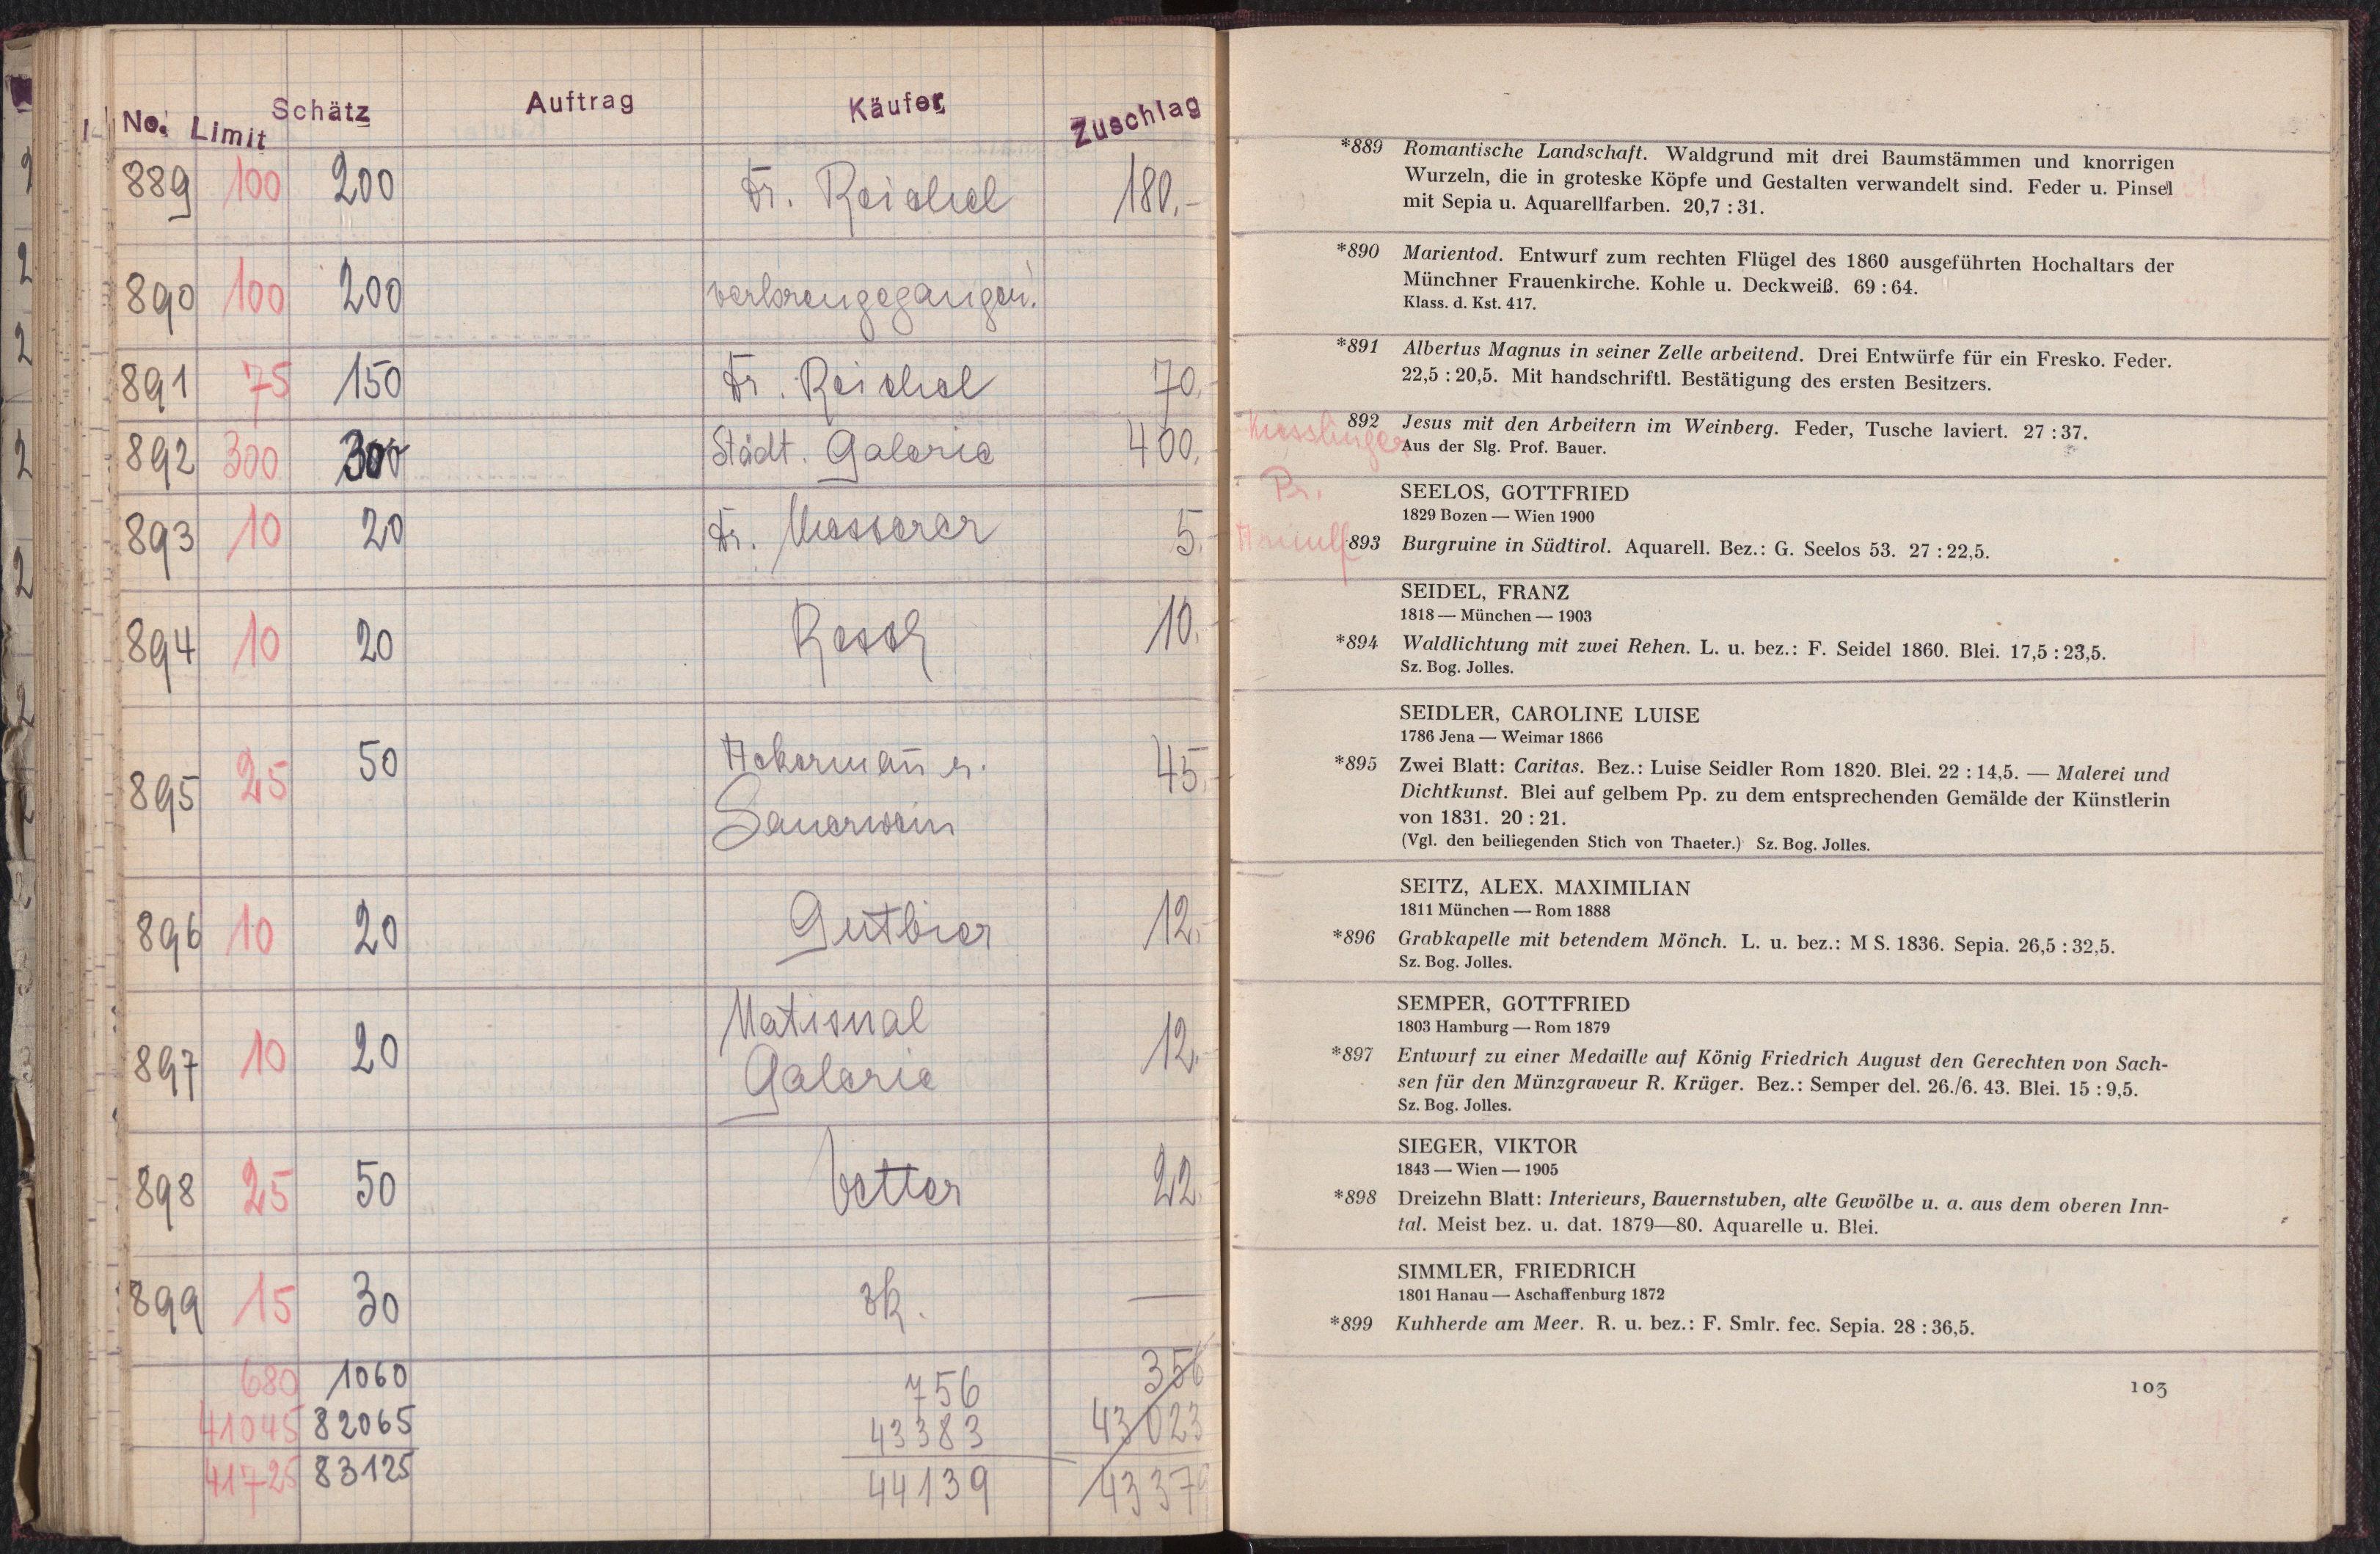 No. Limit Schätz Auftrag Käufer Zuschlag
889 100 200 Dr. Reichel 180.-
890 100 200 verlorengegangen!
891 75 150 Dr. Reichel 70.-
892 300 300 Städt. Galerie 400.
893 10 20 Dr. Messerer 5.-
894 10 20 Rosch 10.
895 25 50 Ackermañ u. 45.-
Sauerwein
896 10 20 Gutbier 12.-
897 10 20 National 12.-
Galerie
898 25 50 Vetter 22.
899 15 30 zk. —
680 1060 756 356
41045 82065 43383 43023
41725 83125 44139 43379
*889 Romantische Landschaft. Waldgrund mit drei Baumstämmen und knorrigen
Wurzeln, die in groteske Köpfe und Gestalten verwandelt sind. Feder u. Pinsel
mit Sepia u. Aquarellfarben. 20,7 : 31.
*890 Marientod. Entwurf zum rechten Flügel des 1860 ausgeführten Hochaltars der
Münchner Frauenkirche. Kohle u. Deckweiß. 69 : 64.
Klass. d. Kst. 417.
*891 Albertus Magnus in seiner Zelle arbeitend. Drei Entwürfe für ein Fresko. Feder.
22,5 : 20,5. Mit handschriftl. Bestätigung des ersten Besitzers.
Kiesslinger
892 Jesus mit den Arbeitern im Weinberg. Feder, Tusche laviert. 27 : 37.
Aus der Slg. Prof. Bauer.
Pr.
SEELOS, GOTTFRIED
1829 Bozen — Wien 1900
893 Burgruine in Südtirol. Aquarell. Bez.: G. Seelos 53. 27 : 22,5.
SEIDEL, FRANZ
1818 — München — 1903
*894 Waldlichtung mit zwei Rehen. L. u. bez.: F. Seidel 1860. Blei. 17,5 : 23,5.
Sz. Bog. Jolles.
SEIDLER, CAROLINE LUISE
1786 Jena — Weimar 1866
*895 Zwei Blatt: Caritas. Bez.: Luise Seidler Rom 1820. Blei. 22 : 14,5. — Malerei und
Dichtkunst. Blei auf gelbem Pp. zu dem entsprechenden Gemälde der Künstlerin
von 1831. 20 : 21.
(Vgl. den beiliegenden Stich von Thaeter.) Sz. Bog. Jolles.
SEITZ, ALEX. MAXIMILIAN
1811 München — Rom 1888
*896 Grabkapelle mit betendem Mönch. L. u. bez.: M S. 1836. Sepia. 26,5 : 32,5.
Sz. Bog. Jolles.
SEMPER, GOTTFRIED
1803 Hamburg — Rom 1879
*897 Entwurf zu einer Medaille auf König Friedrich August den Gerechten von Sach-
sen für den Münzgraveur R. Krüger. Bez.: Semper del. 26./6. 43. Blei. 15 : 9,5.
Sz. Bog. Jolles.
SIEGER, VIKTOR
1843 — Wien — 1905
*898 Dreizehn Blatt: Interieurs, Bauernstuben, alte Gewölbe u. a. aus dem oberen Inn-
tal. Meist bez. u. dat. 1879—80. Aquarelle u. Blei.
SIMMLER, FRIEDRICH
1801 Hanau — Aschaffenburg 1872
*899 Kuhherde am Meer. R. u. bez.: F. Smlr. fec. Sepia. 28 : 36,5.
103